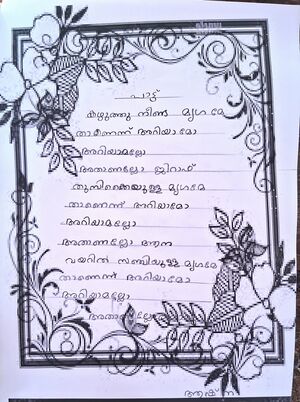 പാട്ട്
കഴുത്തു നീണ്ട മൃഗമേ
താണെന്ന് അറിയാമോ
അറിയാമല്ലോ
അതാണല്ലോ ജിറാഫ്
തുമ്പിക്കൈയുള്ള മൃഗമേ
താണെന്ന് അറിയാമോ
അറിയാമല്ലോ
അതാണല്ലോ ആന
വയറിൽ സഞ്ചിയുള്ള മൃഗമേ
താണെന്ന് അറിയാമോ
അറിയാമല്ലോ